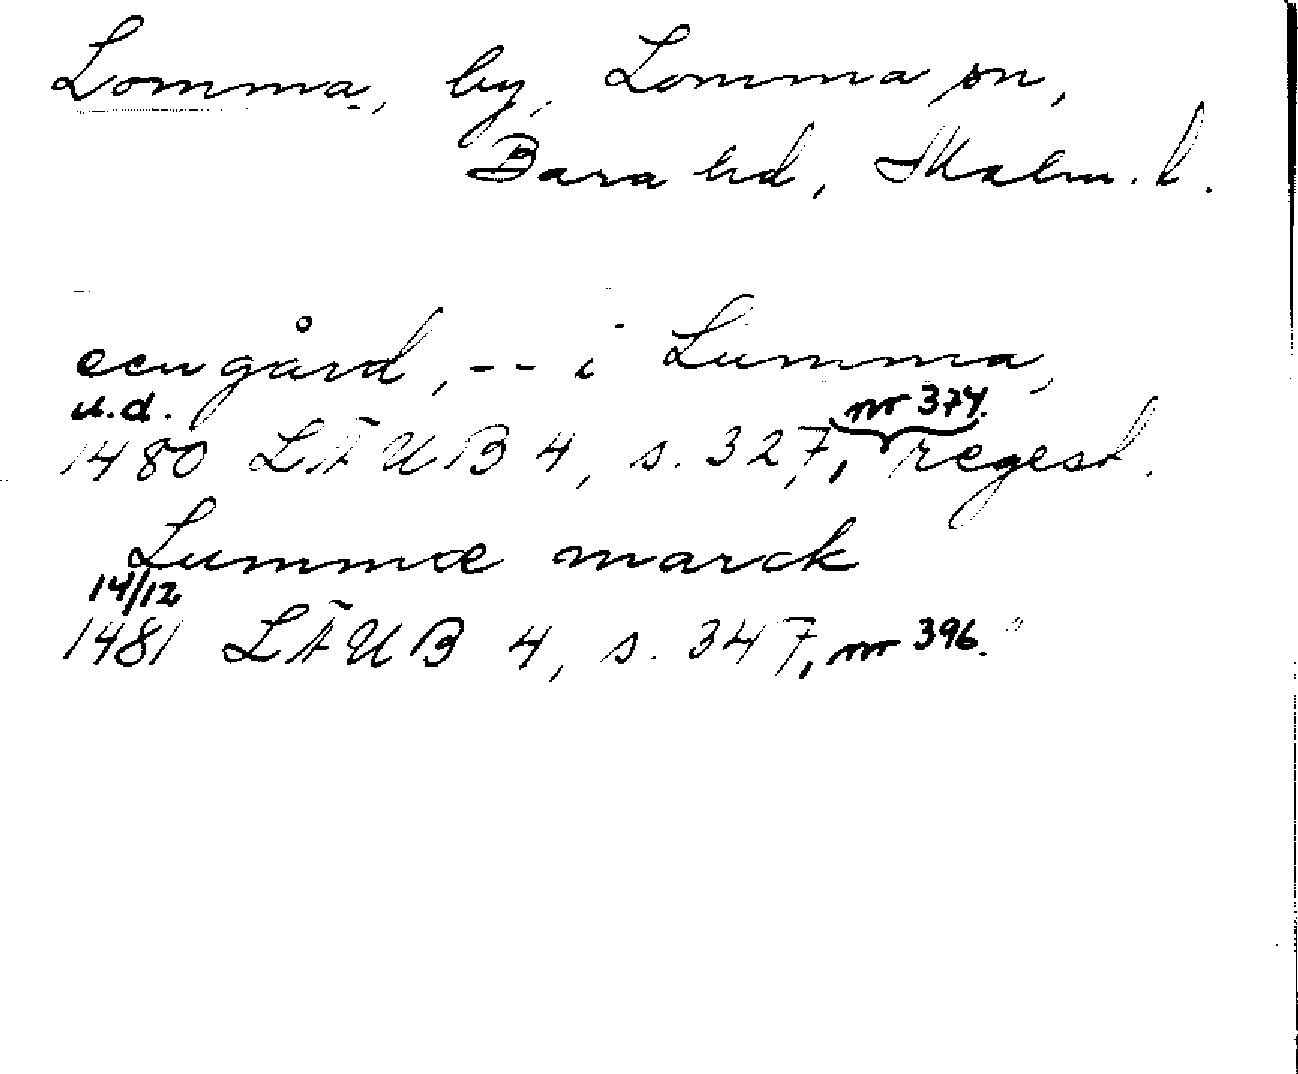 Lomma, by, Lomma sn,
Bara hd, Malm. l.
een gård, -- i Lumma,
u.d. nr 374.
1480 LÄUB 4, s. 327, regest.
Lummæ marck
14/12
1481 LÄUB 4, s. 347, nr 396.